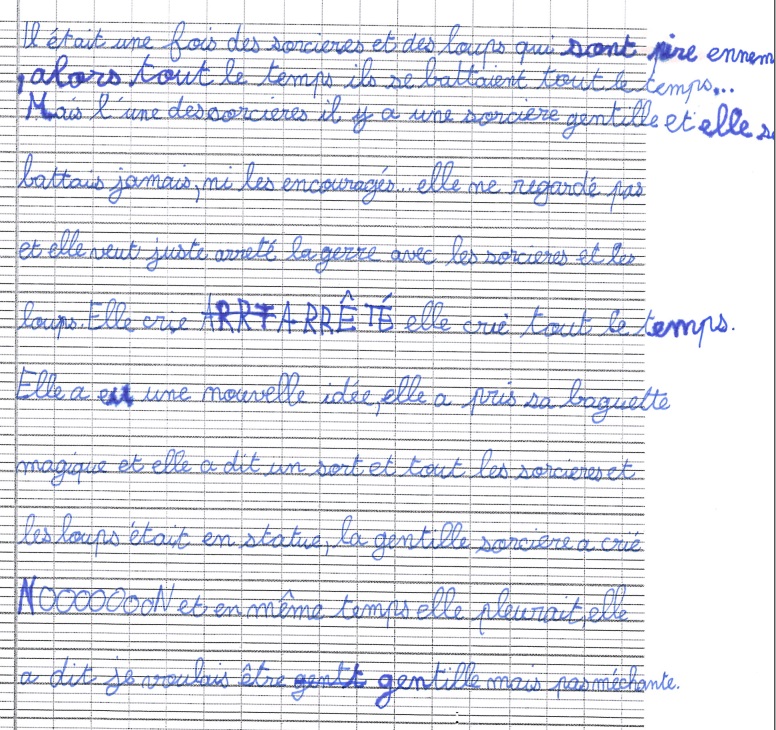 Il était une fois des sorcieres et des loups qui sont pire ennem
, alors tout le temps ils se battaient tout le temps...
Mais l'une des sorcieres il y a une sorcière gentille et elle se
battais jamais, ni les encouragés... elle ne regardé pas
et elle veut juste arreté la gerre avec les sorcieres et les
loups. Elle crie ARRT ARRÊTÉ elle crie tout le temps.
Elle a eu une nouvelle idée, elle a pris sa baguette
magique et elle a dit un sort et tout les sorcieres et
les loups était en statue, la gentille sorcière a crié
NOOOOOOoN et en même temps elle pleurait, elle
a dit je voulais être gentt gentille mais pas méchante.